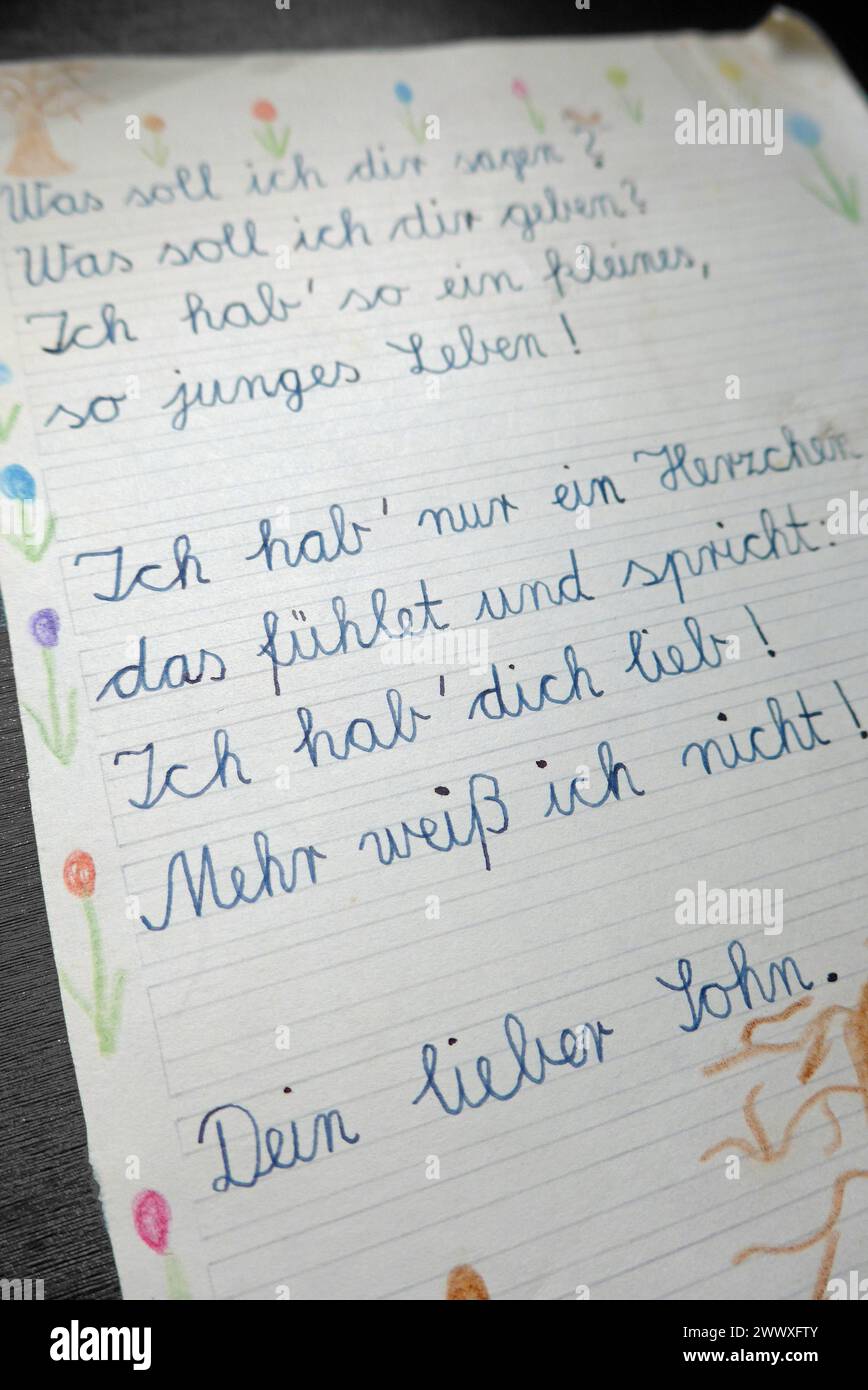 Was soll ich dir sagen?
Was soll ich dir geben?
Ich hab' so ein kleines,
so junges Leben!
Ich hab' nur ein Herzchen
das fühlet und spricht:
Ich hab' dich lieb!
Mehr weiß ich nicht!
Dein lieber Sohn.
alamy
alamy
alamy
Image ID: 2WWXFTY
www.alamy.com